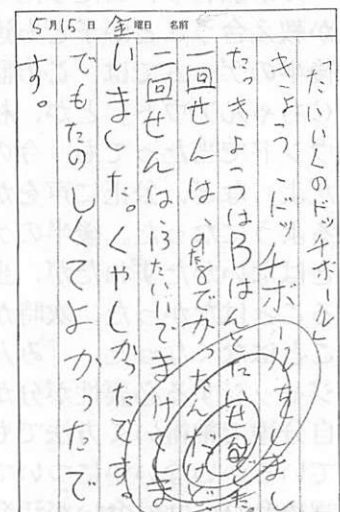 5月15日 金曜日 名前
「たいいくのドッチボール」
きょう、ドッチボールをしまし
たっきょうはBはんとたいせんでした。
一回せんは、9たい8でかったんだけど、
二回せんは、13たい で まけてしま
いました。くやしかったです。
でもたのしくてよかったで
す。